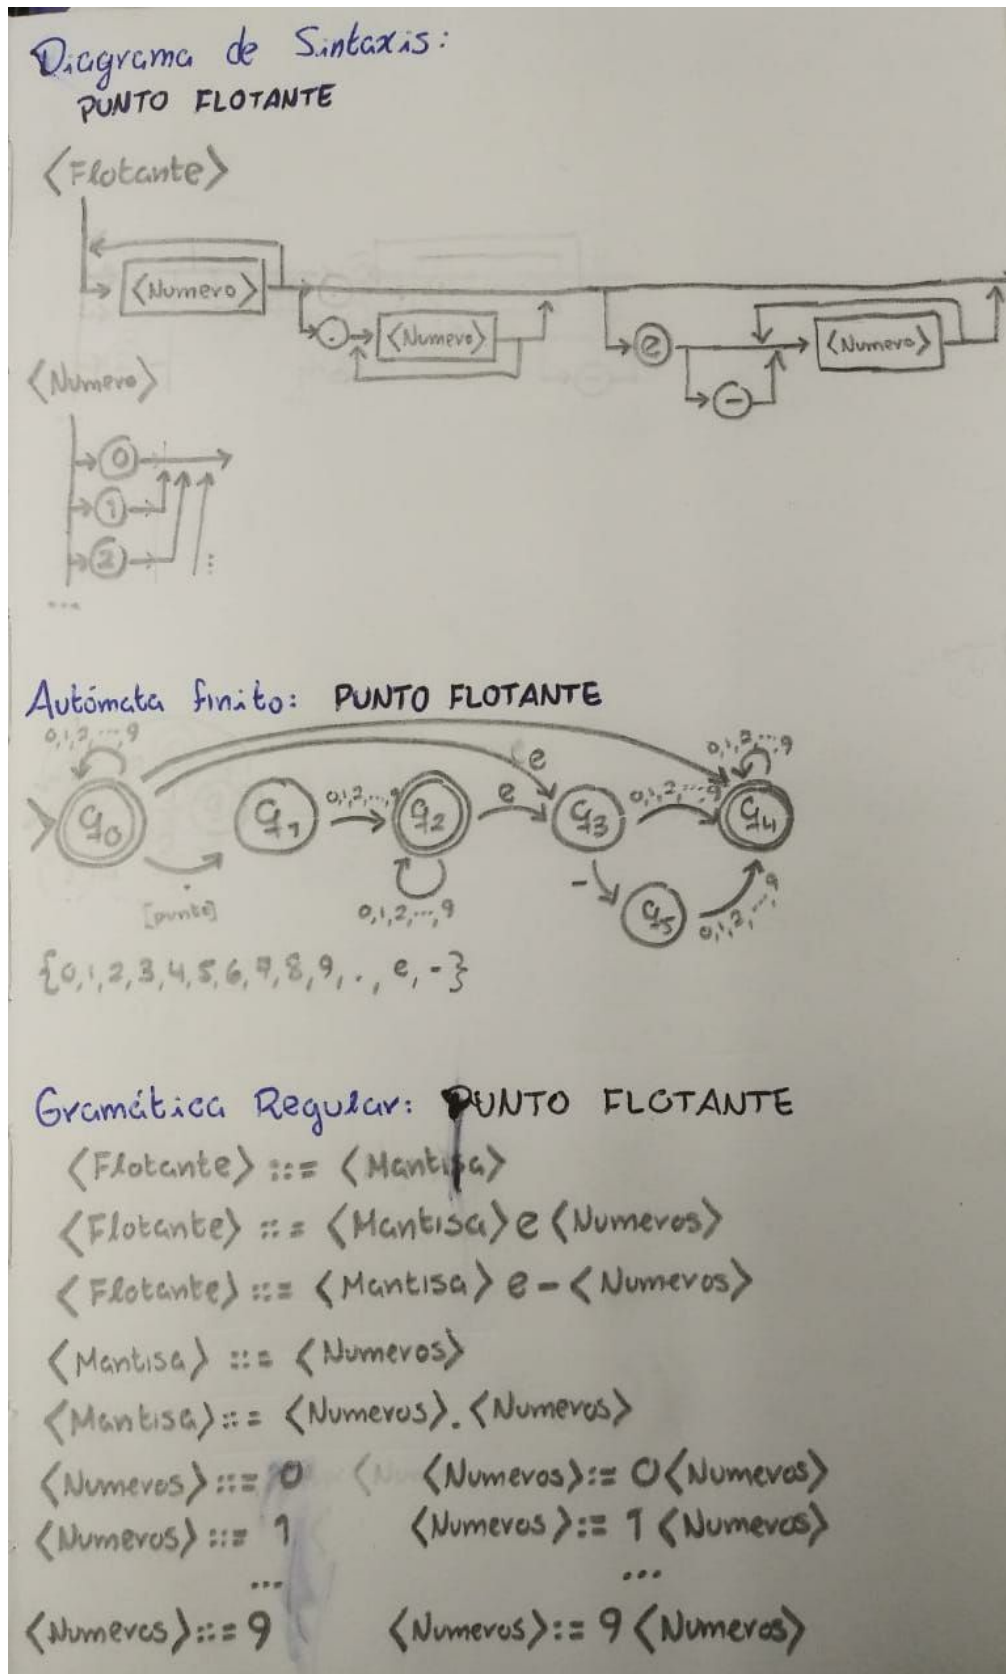 Diagrama de Sintaxis:
PUNTO FLOTANTE
<Flotante>
<Numero>
. <Numero> e <Numero>
-
<Numero>
0
1
2
⋮
...
Autómata finito: PUNTO FLOTANTE
0,1,2,...,9 e 0,1,2,...,9
q0 q1 0,1,2,...,9 q2 e q3 0,1,2,...,9 q4
. - q5
[punto] 0,1,2,...,9 0,1,2,...,9
{0,1,2,3,4,5,6,7,8,9,., e, -}
Gramática Regular: PUNTO FLOTANTE
<Flotante> ::= <Mantisa>
<Flotante> ::= <Mantisa> e <Numeros>
<Flotante> ::= <Mantisa> e - <Numeros>
<Mantisa> ::= <Numeros>
<Mantisa> ::= <Numeros> . <Numeros>
<Numeros> ::= 0 <Numeros> := 0 <Numeros>
<Numeros> ::= 1 <Numeros> := 1 <Numeros>
... ...
<Numeros> ::= 9 <Numeros> := 9 <Numeros>